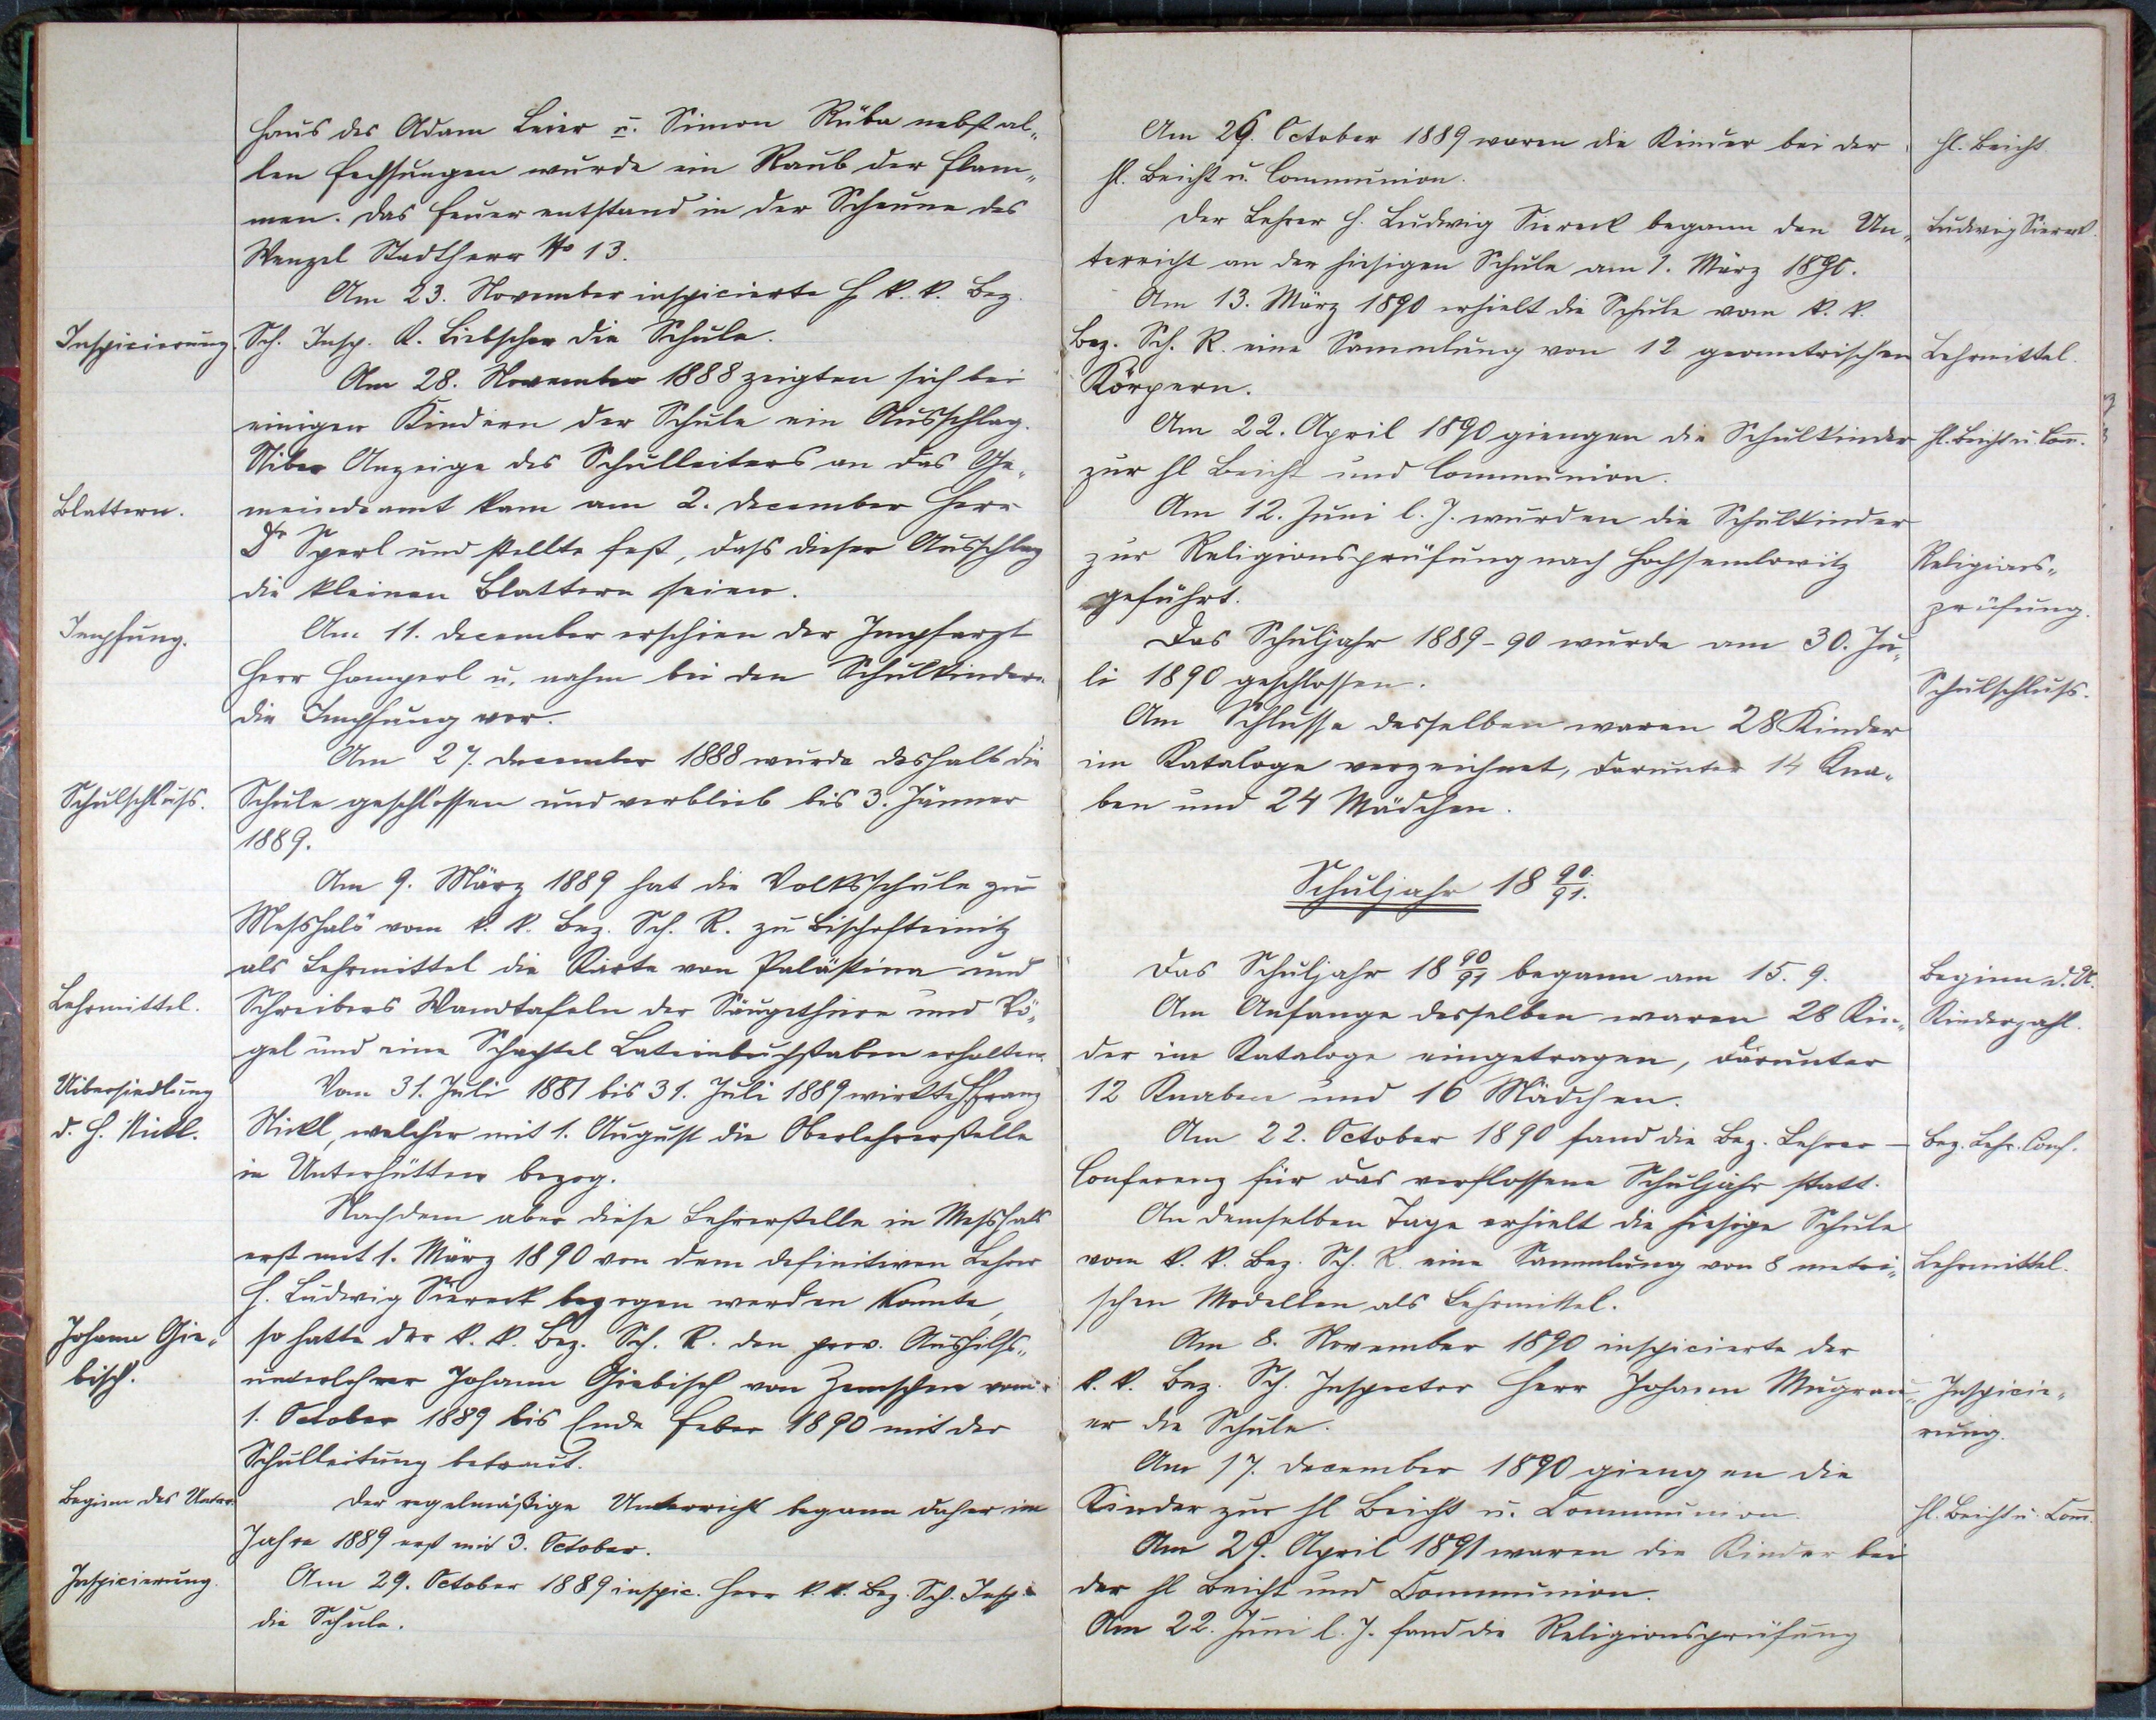 Haus des Adam Leier u. Simon Rüba nebst al„
len Fechsungen wurde ein Raub der Flam„
men. Das Feuer entstand in der Scheune des
Wenzel Stadtherr No 13.
Am 23. November inspicierte H k. k. Bez.
Inspicierung. Sch. Insp. A. Liebscher die Schule.
Am 28. November 1888 zeigten sich bei
einigen Kindern der Schule ein Ausschlag.
Uiber Anzeige des Schulleiters an das Ge„
Blattern. meindeamt kam am 2. December Herr
Dr Sperl und stellte fest, dass dieser Ausschlag
die kleinen Blattern seien.
Impfung. Am 11. December erschien der Impfarzt
Herr Hamperl u. nahm bei den Schulkindern
die Impfung vor.
Am 27. December 1888 wurde deshalb die
Schulschluss. Schule geschlossen und verblieb bis 3. Jänner
1889.
Am 9. März 1889 hat die Volksschule zu
Messhals vom k. k. Bez. Sch. R. zu Bischofteinitz
als Lehrmittel die Karte von Palästina und
Lehrmittel. Schreibers Wandtafeln der Säugethiere und Vö„
gel und eine Schachtel Lateinbuchstaben erhalten.
Uibersiedlung Vom 31. Juli 1881 bis 31. Juli 1889 wirkte H Franz
d. H. Nickl. Nickl, welcher mit 1. August die Oberlehrerstelle
in Unterhütten bezog.
Nachdem aber diese Lehrerstelle in Messhals
erst mit 1. März 1890 von dem definitiven Lehrer
H. Ludwig Siereck bezogen werden konnte,
Johann Gie„ so hatte der k. k. Bez. Sch. R. den prov. Aushilfs„
bisch. unterlehrer Johann Giebisch von Zemschen vom
1. October 1889 bis Ende Feber 1890 mit der
Schulleitung betraut.
Beginn des Unter. Der regelmäßige Unterricht begann daher im
Jahre 1889 erst mit 3. October.
Inspicierung. Am 29. October 1889 inspic. Herr k. k. Bez. Sch. Insp.
die Schule.
Am 26. October 1889 waren die Kinder bei der hl. Beicht.
hl. Beicht u. Communion.
Der Lehrer H. Ludwig Siereck begann den Un„ Ludwig Siereck.
terricht an der hiesigen Schule am 1. März 1890.
Am 13. März 1890 erhielt die Schule vom k. k.
Bez. Sch. R. eine Sammlung von 12 geometrischen Lehrmittel.
Körpern.
Am 22. April 1890 giengen die Schulkinder hl. Beicht u. Com.
zur hl Beicht und Communion.
Am 12. Juni l. J. wurden die Schulkinder
zur Religionsprüfung nach Hochsemlowitz Religions„
geführt. prüfung.
Das Schuljahr 1889-90 wurde am 30. Ju„
li 1890 geschlossen. Schulschluss.
Am Schlusse desselben waren 28 Kinder
im Kataloge verzeichnet, darunter 14 Kna„
ben und 24 Mädchen.
Schuljahr 18 90/91.
Das Schuljahr 18 90/91 begann am 15. 9. Beginn d. U.
Am Anfange desselben waren 28 Kin„ Kinderzahl.
der im Kataloge eingetragen, darunter
12 Knaben und 16 Mädchen.
Am 22. October 1890 fand die Bez. Lehrer- Bez. Lehr. Conf.
Conferenz für das verflossene Schuljahr statt.
An demselben Tage erhielt die hiesige Schule
vom k. k. Bez. Sch. R. eine Sammlung von 8 metri„ Lehrmittel.
schen Modellen als Lehrmittel.
Am 8. November 1890 inspicierte der
k. k. Bez. Sch. Inspector Herr Johann Mugrau„ Inspicie„
er die Schule. rung.
Am 17. December 1890 giengen die
Kinder zur hl Beicht u. Communion. hl. Beicht u. Com.
Am 29. April 1891 waren die Kinder bei
der hl Beicht und Communion.
Am 22. Juni l. J. fand die Religionsprüfung